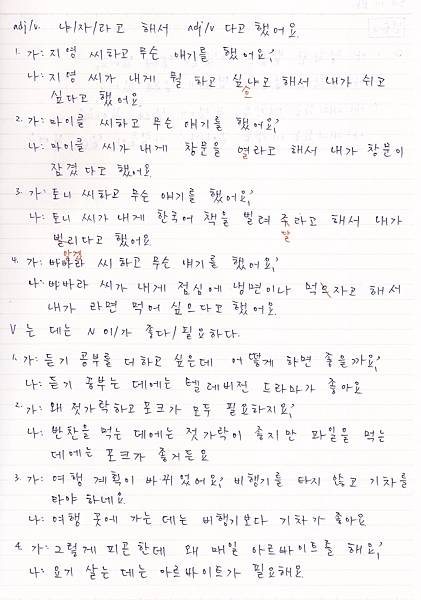 adj/v. 냐/자/라고 해서 adj/v 다고 했어요
1. 가: 지영 씨하고 무슨 얘기를 했어요?
나: 지영 씨가 내게 뭘 하고 싶냐고 해서 내가 쉬고
으
싶다고 했어요.
2. 가: 마이클 씨하고 무슨 얘기를 했어요?
나: 마이클 씨가 내게 창문을 열라고 해서 내가 창문이
잠겼다고 했어요
3. 가: 토니 씨하고 무슨 얘기를 했어요?
나: 토니 씨가 내게 한국어 책을 빌려 주라고 해서 내가
달
빌리다고 했어요
4. 가: 바바라 씨하고 무슨 얘기를 했어요?
나: 바바라 씨가 내게 점심에 냉면이나 먹으자고 해서
내가 라면 먹어 싶으다고 했어요.
V 는 데는 N이/가 좋다/필요하다.
1. 가: 듣기 공부를 더 하고 싶은데 어떻게 하면 좋을까요?
나: 듣기 공부는 데에는 텔레비전 드라마가 좋아요
2. 가: 왜 젓가락하고 포크가 모두 필요하지요?
나: 반찬을 먹는 데에는 젓가락이 좋지만 과일을 먹는
데에는 포크가 좋거든요
3. 가: 여행 계획이 바뀌었어요? 비행기를 타지 않고 기차를
타야 하네요.
나: 여행 곳에 가는 데는 비행기보다 기차가 좋아요
4. 가: 그렇게 피곤한데 왜 매일 아르바이트를 해요?
나: 요기 살는 데는 아르바이트가 필요해요.